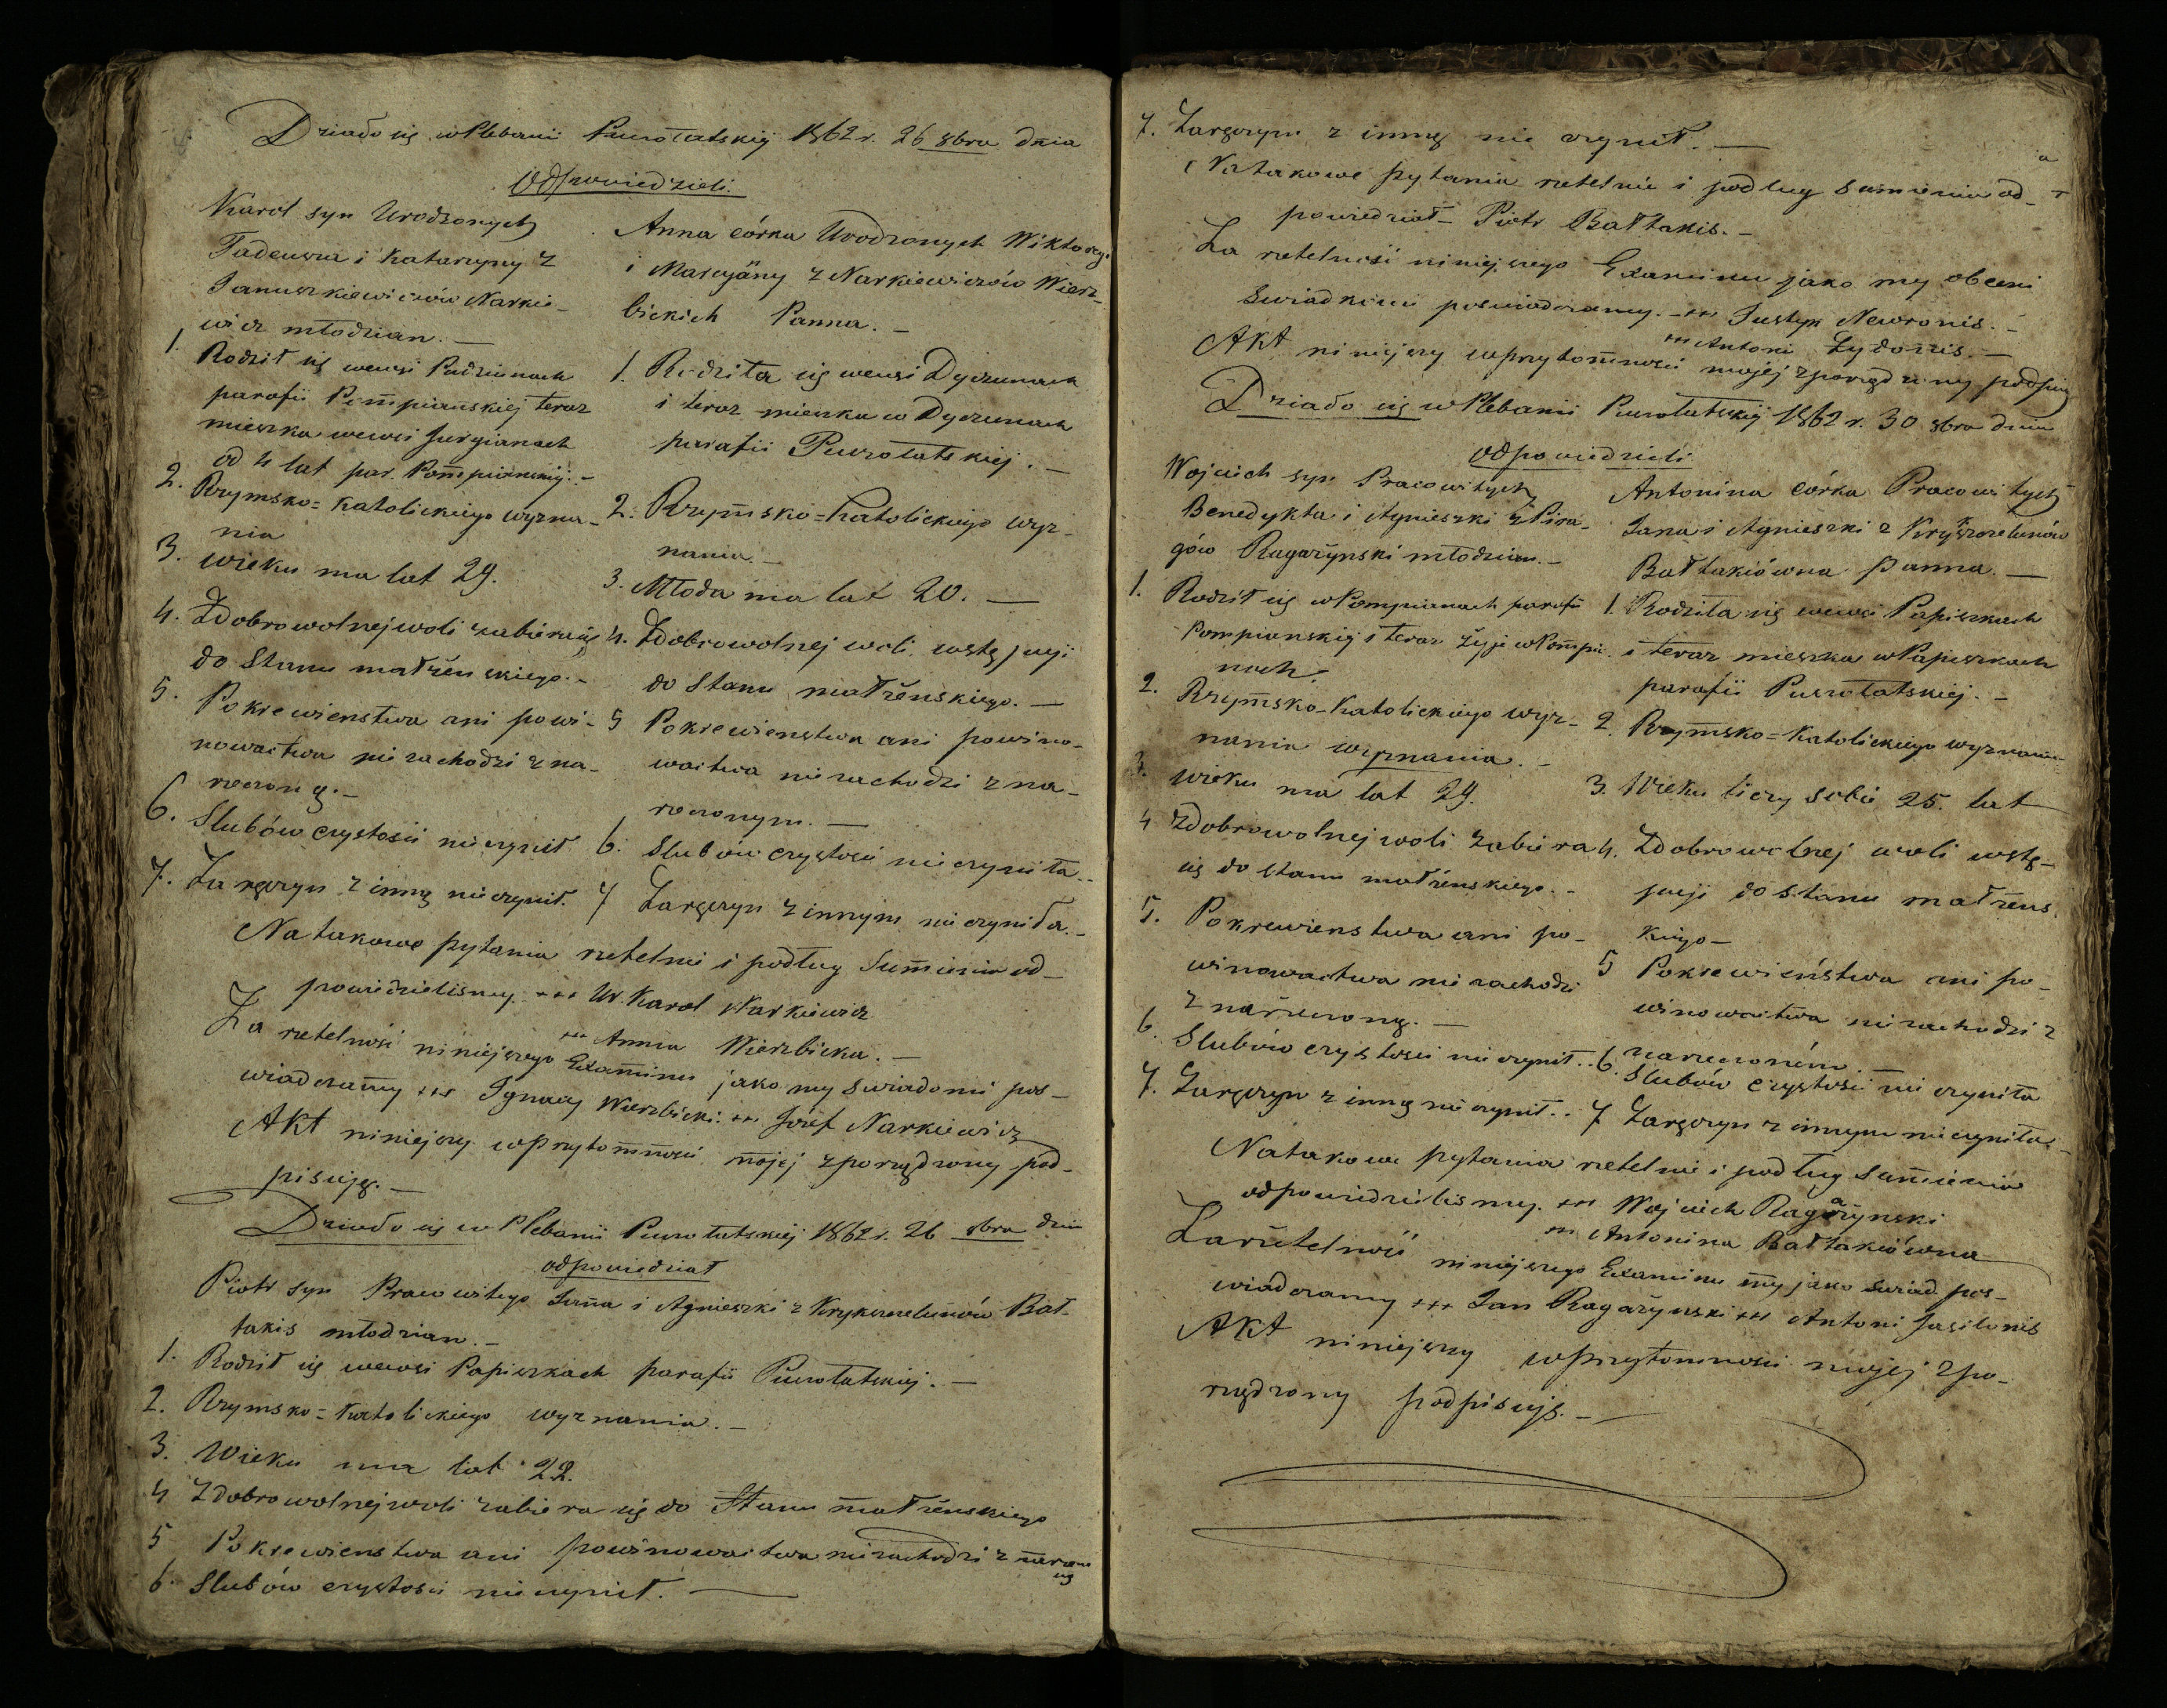 Działo się w Plebanii Puszołatskiej 1862 r. 26 8bra dnia
Odpowiedzieli.
Karol syn Urodzonych
Tadeusza i Katarzyny z
Januszkiewiczów Narkie-
wicz młodzian. —
1. Rodził się wewsi Padziunach
parafii Pompiańskiej teraz
mieszka wewsi Jurgianach
od 4 lat par. Pompiańskiej. -
2. Rzymsko=Katolickiego wyzna-
nia
3. wieku ma lat 29.
4. Zdobrowolnej woli zabiera się
do Stanu małżenskiego. -
5. Pokrewienstwa ani powi-
nowactwa nie zachodzi z na-
rzeczoną. -
6. Slubów czystości nie czynił
7. Zaręczyn z inną nie czynił.
Anna córka Urodzonych Wiktorego
i Maryjany z Narkiewiczów Wierz-
bickich Panna. -
1. Rodziła się wewsi Dyczunach
i teraz mieszka w Dyczunach
parafii Puszołatskiej. -
2. Rzymsko=Katolickiego wyz-
nania. -
3. Młoda ma lat 20. —
4. Zdobrowolnej woli wstępuji
do Stanu małżenskiego. —
5 Pokrewienstwa ani powino-
wactwa nie zachodzi z na-
rzeczonym. —
6. Slubów czystości nie czyniła. -
7 Zaręczyn z innym nie czyniła. -
Natakowe pytania rzetelnie i podług Sumienia od-
powiedzielismy. +++ Ur. Karol Narkiewicz
+++ Anna Wierzbicka. —
Za rzetelność niniejszego Examinu jako my swiadomi pos-
wiadczamy +++ Ignacy Wierzbicki: +++ Józef Narkiewicz
Akt niniejszy wprzytomności mojej zporządzony pod-
pisuję. —
Działo się w Plebanii Puszołatskiej 1862 r. 26 8bra dnia
odpowiedział
Piotr syn Pracowitego Jana i Agnieszki z Krykszczelunów Bał-
takis młodzian. -
1. Rodził się wewsi Papiszkach parafii Puszołatskiej. —
2. Rzymsko=Katolickiego wyznania. —
3. Wieku ma lat 22.
4 Zdobrowolnej woli zabiera się do Stanu małżenskiego
5 Pokrewienstwa ani powinowactwa nie zachodzi z narzeczo
ną
6. Slubów czystości nie czynił. —
7. Zaręczyn z inną nie czynił. —
Natakowe pytania rzetelnie i podług Sumienia od-
powiedział - Piotr Bałtakis. -
Za rzetelność niniejszego Examinu jako my obecni
Swiadkowie poswiadczamy. - +++ Justyn Newronis. -
+++ Antoni Żydonis. —
Akt niniejszy wprzytomności mojej zporządzony podpisuję
Działo się w Plebanii Puszołatskiej 1862 r. 30 8bra dnia
odpowiedzieli
Wojciech syn Pracowitych
Benedykta i Agnieszki z Pira-
gów Ragażynski młodzian. -
1. Rodził się w Pompianach parafii
Pompianskiej i teraz żyje w Pompia-
nach.
2. Rzymsko-Katolickiego wyz-
nania wyznania. -
3. wieku ma lat 29.
4 Zdobrowolnej woli zabiera
się do stanu małżenskiego. -
5. Pokrewienstwa ani po-
winowactwa nie zachodzi
z narzeczoną. —
6. Slubów czystości nie czynił. .
7. Zaręczyn z inną nie czynił. .
Antonina córka Pracowitych
Jana i Agnieszki z Krykszczelunów
Bałtakiówna panna. —
1. Rodziła się wewsi Papiszkach
i teraz mieszka w Papiszkach
parafii Puszołatskiej. -
2. Rzymsko=Katolickiego wyznania-
3. Wieku liczy sobie 25. lat
4. Zdobrowolnej woli wstę-
puji do stanu małżens
kiego —
5 Pokrewieństwa ani po-
winowactwa nie zachodzi z
narzeczoném. —
6. Slubów czystości nie czyniła
7 Zaręczyn z innym nie czyniła.
Natakowe pytania rzetelnie i podług Sumienia
odpowiedzielismy. +++ Wojciech Ragażynski
+++ Antonina Bałtakiówna
Za rzetelność niniejszego Examinu my jako swiad. pos-
wiadczamy +++ Jan Ragażynski +++ Antoni Jasilonis
Akt niniejszy wprzytomności mojej zpo-
rządzony podpisuję. -